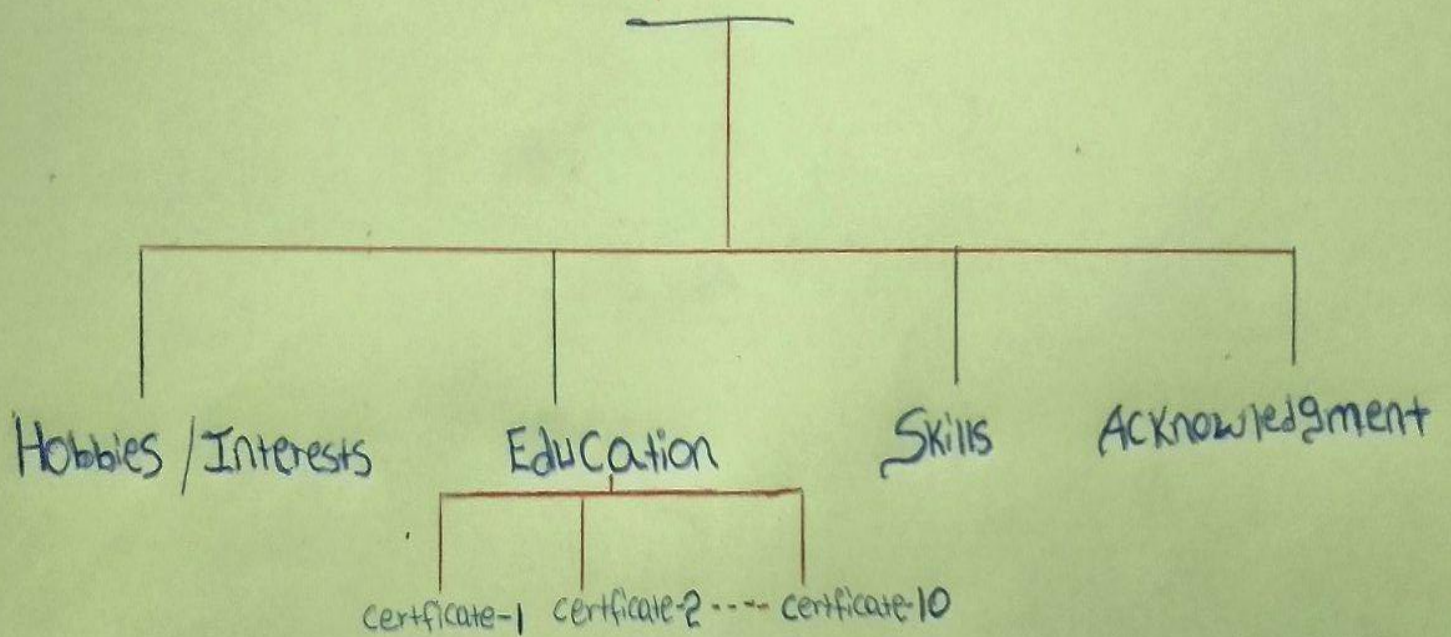 Hobbies / Interests Education Skills Acknowledgment
certficate-1 certficate-2 ---- certficate-10